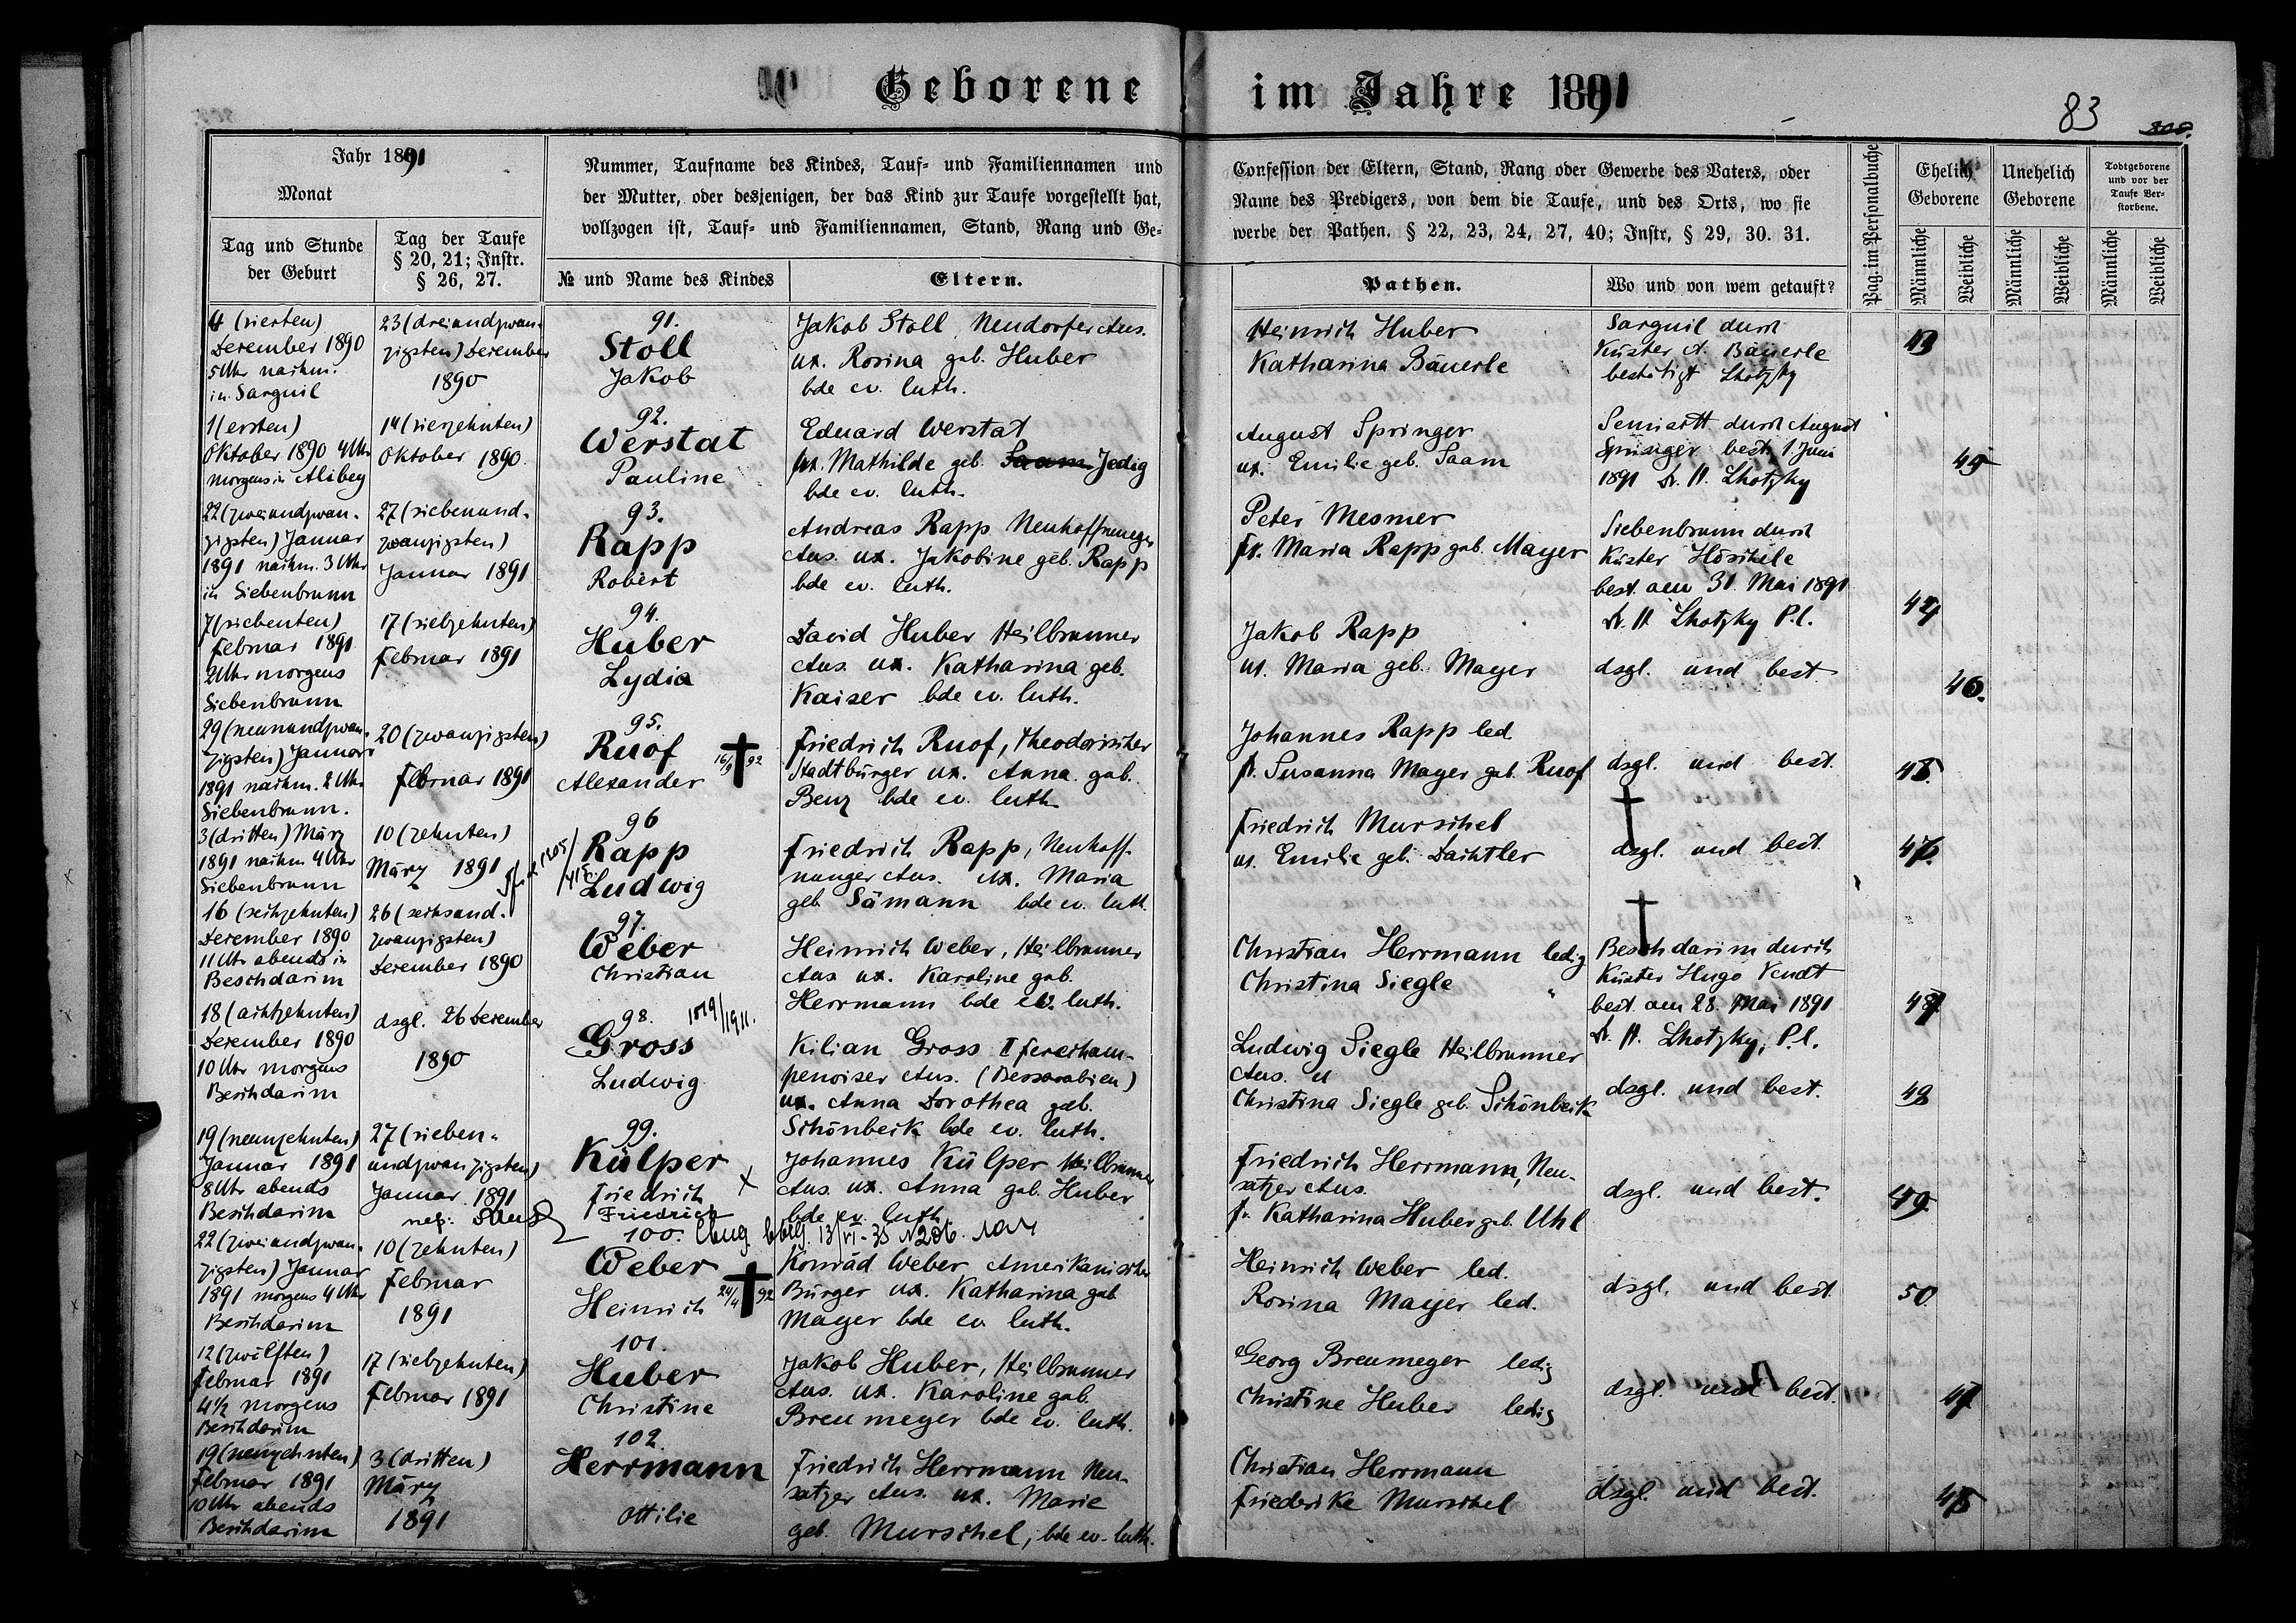 Geborene im Jahre 1891
83
Jahr 1891
Monat
Tag und Stunde
der Geburt
Tag der Taufe
§ 20, 21; Instr.
§ 26, 27.
Nummer, Taufname des Kindes, Tauf- und Familiennamen und
der Mutter, oder desjenigen, der das Kind zur Taufe vorgestellt hat,
vollzogen ist, Tauf- und Familiennamen, Stand, Rang und Ge-
№ und Name des Kindes
Eltern.
Confession der Eltern, Stand, Rang oder Gewerbe des Vaters, oder
Name des Predigers, von dem die Taufe, und des Orts, wo sie
werbe der Pathen. § 22, 23, 24, 27, 40; Instr. § 29, 30. 31.
Pathen.
Wo und von wem getauft?
Pag. im Personalbuche
Ehelich
Geborene
Unehelich
Geborene
Todtgeborene
und vor der
Taufe Ver-
storbene.
Männliche
Weibliche
Männliche
Weibliche
Männliche
Weibliche
4 (vierten)
Dezember 1890
5 Uhr nachm.
in Sarguil
23 (dreiundzwan-
zigsten) Dezember
1890
91.
Stoll
Jakob
Jakob Stoll, Neudorfer Aus.
ux. Rosina geb. Huber
bde ev. luth.
Heinrich Huber
Katharina Bäuerle
Sarguil durch
Küster A. Bäuerle
bestätigt Lhotzky
43
1 (ersten)
Oktober 1890 4 Uhr
morgens in Alibey
14 (vierzehnten)
Oktober 1890.
92.
Werstat
Pauline
Eduard Werstat
ux. Mathilde geb. Saam Jedig
bde ev. luth.
August Springer
ux. Emilie geb. Saam
durch August
Springer best. 1 Juni
1891 Dr. H. Lhotzky
45
22 (zweiundzwan-
zigsten) Januar
1891 nachm. 3 Uhr
in Siebenbrunn
27 (siebenund-
zwanzigsten)
Januar 1891
93.
Rapp
Robert
Andreas Rapp Neuhoffnunger
Aus. ux. Jakobine geb. Rapp
bde ev. luth.
Peter Mesmer
fr. Maria Rapp geb. Mayer
Siebenbrunn durch
Küster Höschele
best. am 31 Mai 1891
Dr. H. Lhotzky P.l.
7 (siebenten)
Februar 1891
2 Uhr morgens
Siebenbrunn
17 (siebzehnten)
Februar 1891
94.
Huber
Lydia
David Huber Heilbrunner
Aus. ux. Katharina geb.
Kaiser bde ev. luth.
Jakob Rapp
ux. Maria geb. Mayer
dsgl. und best.
46.
29 (neunundzwan-
zigsten) Januar
1891 nachm. 2 Uhr
Siebenbrunn.
20 (zwanzigsten)
Februar 1891
95.
Ruof
Alexander
16/9 92
Friedrich Ruof, Theodosischer
Stadtbürger ux. Anna geb.
Benz bde ev. luth
Johannes Rapp led.
fr. Susanna Mayer geb. Ruof
dsgl. und best.
3 (dritten) März
1891 nachm 4 Uhr
Siebenbrunn
10 (zehnten)
März 1891
96
Rapp
Ludwig
Friedrich Rapp, Neuhoff-
nunger Aus. ux. Maria
geb. Sämann bde ev. luth.
Friedrich Murschel
ux. Emilie geb. Dachtler
dsgl. und best.
16 (sechzehnten)
Dezember 1890
11 Uhr abends in
Beschdarim
26 (sechsund-
zwanzigsten)
Dezember 1890
97.
Weber
Christian
Heinrich Weber, Heilbrunner
Aus ux. Karoline geb.
Herrmann bde ev. luth.
Christian Herrmann ledig
Christina Siegle "
Beschdarim durch
Küster Hugo Vendt
best. am 28. Mai 1891
Dr. H. Lhotzky, P.l.
18 (achtzehnten)
Dezember 1890
10 Uhr morgens
Beschdarim
dsgl. 26 Dezember
1890
98.
Gross
Ludwig
Kilian Gross II Fereham-
penoiser Aus. (Bessarabien)
ux. Anna Dorothea geb.
Schönbeck bde ev. luth.
Ludwig Siegle Heilbrunner
Aus. u
Christina Siegle geb. Schönbeck
dsgl. und best.
48
19 (neunzehnten)
Januar 1891
8 Uhr abends
Beschdarim
27 (sieben-
undzwanzigsten)
Januar 1891
99.
Külper
Friedrich
Friedrich
Johannes Külper Heilbrunner
Aus. ux. Anna geb. Huber
bde ev. luth
Friedrich Herrmann, Neu-
satzer Aus.
fr. Katharina Huber geb. Uhl
dsgl. und best.
49.
22 (zweiundzwan-
zigsten) Januar
1891 morgens 4 Uhr
Beschdarim
10 (zehnten)
Februar
1891
100.
Weber
Heinrich
24/4 92
Konrad Weber Amerikanischer
Bürger ux. Katharina geb
Mayer bde ev luth.
Heinrich Weber led.
Rosina Mayer led.
dsgl. und best.
50
12 (zwölften)
Februar 1891
4½ morgens
Beschdarim
17 (siebzehnten)
Februar 1891
101.
Huber
Christine
Jakob Huber, Heilbrunner
Aus. ux. Karoline geb.
Breumeger bde ev. luth.
Georg Breumeger ledig
Christine Huber ledig
dsgl. und best.
47
19 (neunzehnten)
Februar 1891
10 Uhr abends
Beschdarim
3 (dritten)
März
1891
102.
Herrmann
Ottilie
Friedrich Herrmann Neu-
satzer Aus. ux. Marie
geb. Murschel, bde ev. luth.
Christian Herrmann
Friederike Murschel
dsgl. und best.
48